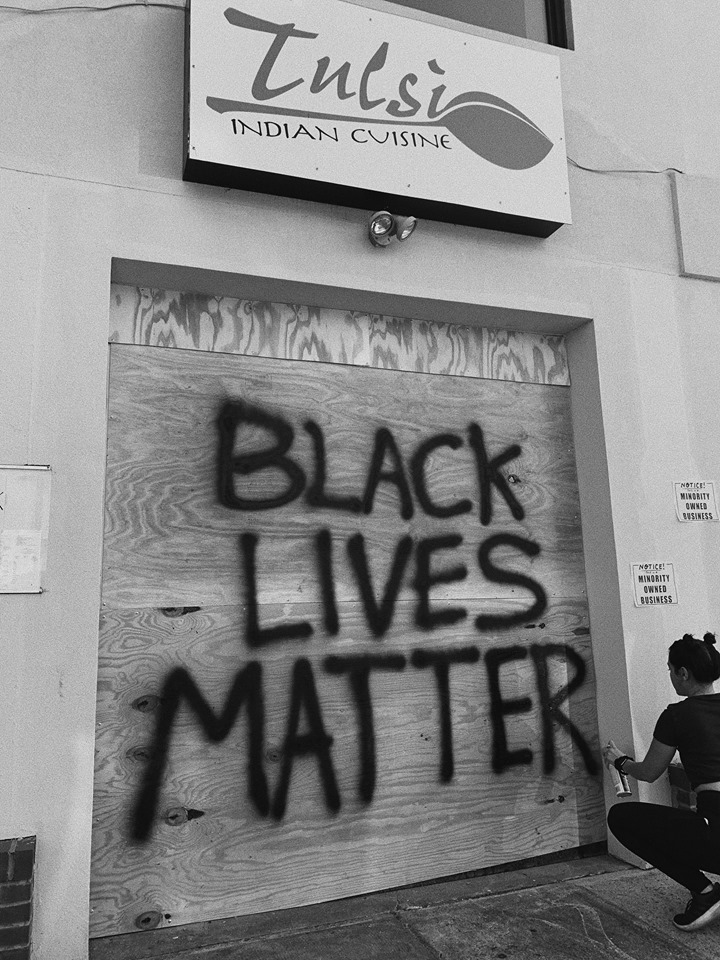 Tulsi
INDIAN CUISINE
BLACK
LIVES
MATTER
NOTICE!
MINORITY
OWNED
BUSINESS
NOTICE!
MINORITY
OWNED
BUSINESS